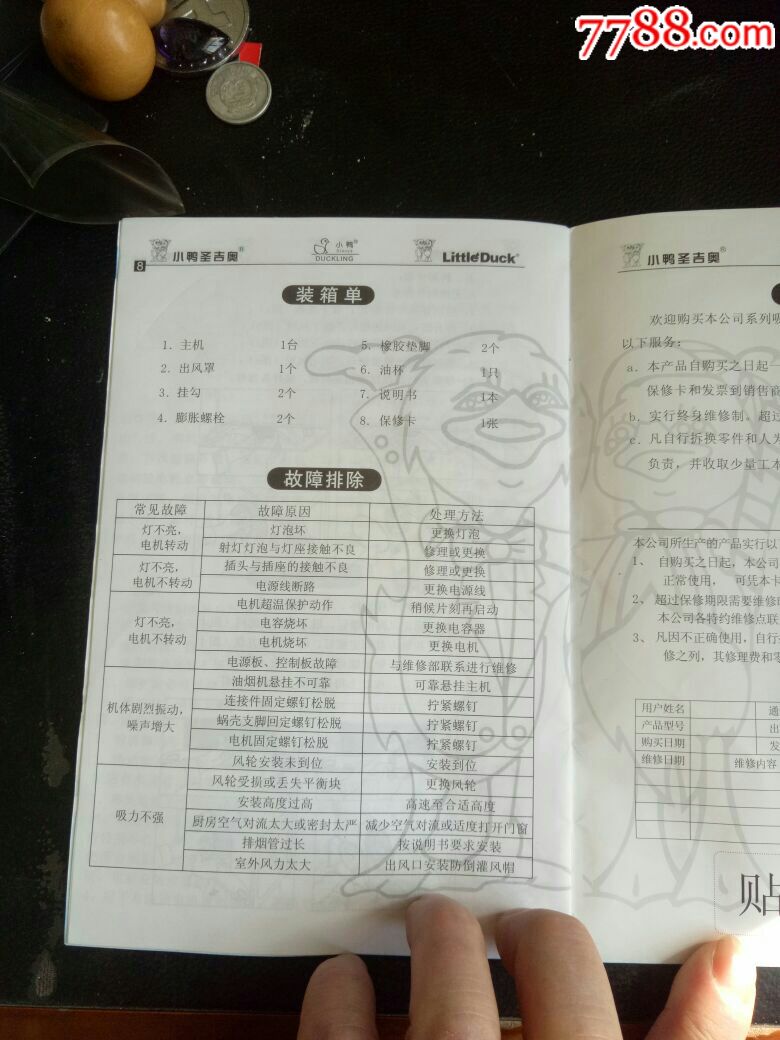 7788.com
8
小鸭圣吉奥®
小鸭®
DUCKLING
Little Duck®
装箱单
1. 主机 1台 5. 橡胶垫脚 2个
2. 出风罩 1个 6. 油杯 1只
3. 挂勾 2个 7. 说明书 1本
4. 膨胀螺栓 2个 8. 保修卡 1张
故障排除
常见故障 故障原因 处理方法
灯不亮,
电机转动
灯泡坏 更换灯泡
射灯灯泡与灯座接触不良 修理或更换
灯不亮,
电机不转动
插头与插座的接触不良 修理或更换
电源线断路 更换电源线
灯不亮,
电机不转动
电机超温保护动作 稍候片刻再启动
电容烧坏 更换电容器
电机烧坏 更换电机
电源板、控制板故障 与维修部联系进行维修
机体剧烈振动,
噪声增大
油烟机悬挂不可靠 可靠悬挂主机
连接件固定螺钉松脱 拧紧螺钉
蜗壳支脚回定螺钉松脱 拧紧螺钉
电机固定螺钉松脱 拧紧螺钉
风轮安装未到位 安装到位
吸力不强
风轮受损或丢失平衡块 更换风轮
安装高度过高 高速至合适高度
厨房空气对流太大或密封太严 减少空气对流或适度打开门窗
排烟管过长 按说明书要求安装
室外风力太大 出风口安装防倒灌风帽
小鸭圣吉奥®
欢迎购买本公司系列吸
以下服务:
a. 本产品自购买之日起一
保修卡和发票到销售商
b. 实行终身维修制。超过
c. 凡自行折换零件和人为
负责,并收取少量工本
本公司所生产的产品实行以下
1、 自购买之日起,本公司
正常使用, 可凭本卡
2、 超过保修期限需要维修的
本公司各特约维修点联
3、 凡因不正确使用,自行
修之列,其修理费和零
用户姓名 通
产品型号 出
购买日期 发
维修日期 维修内容
贴